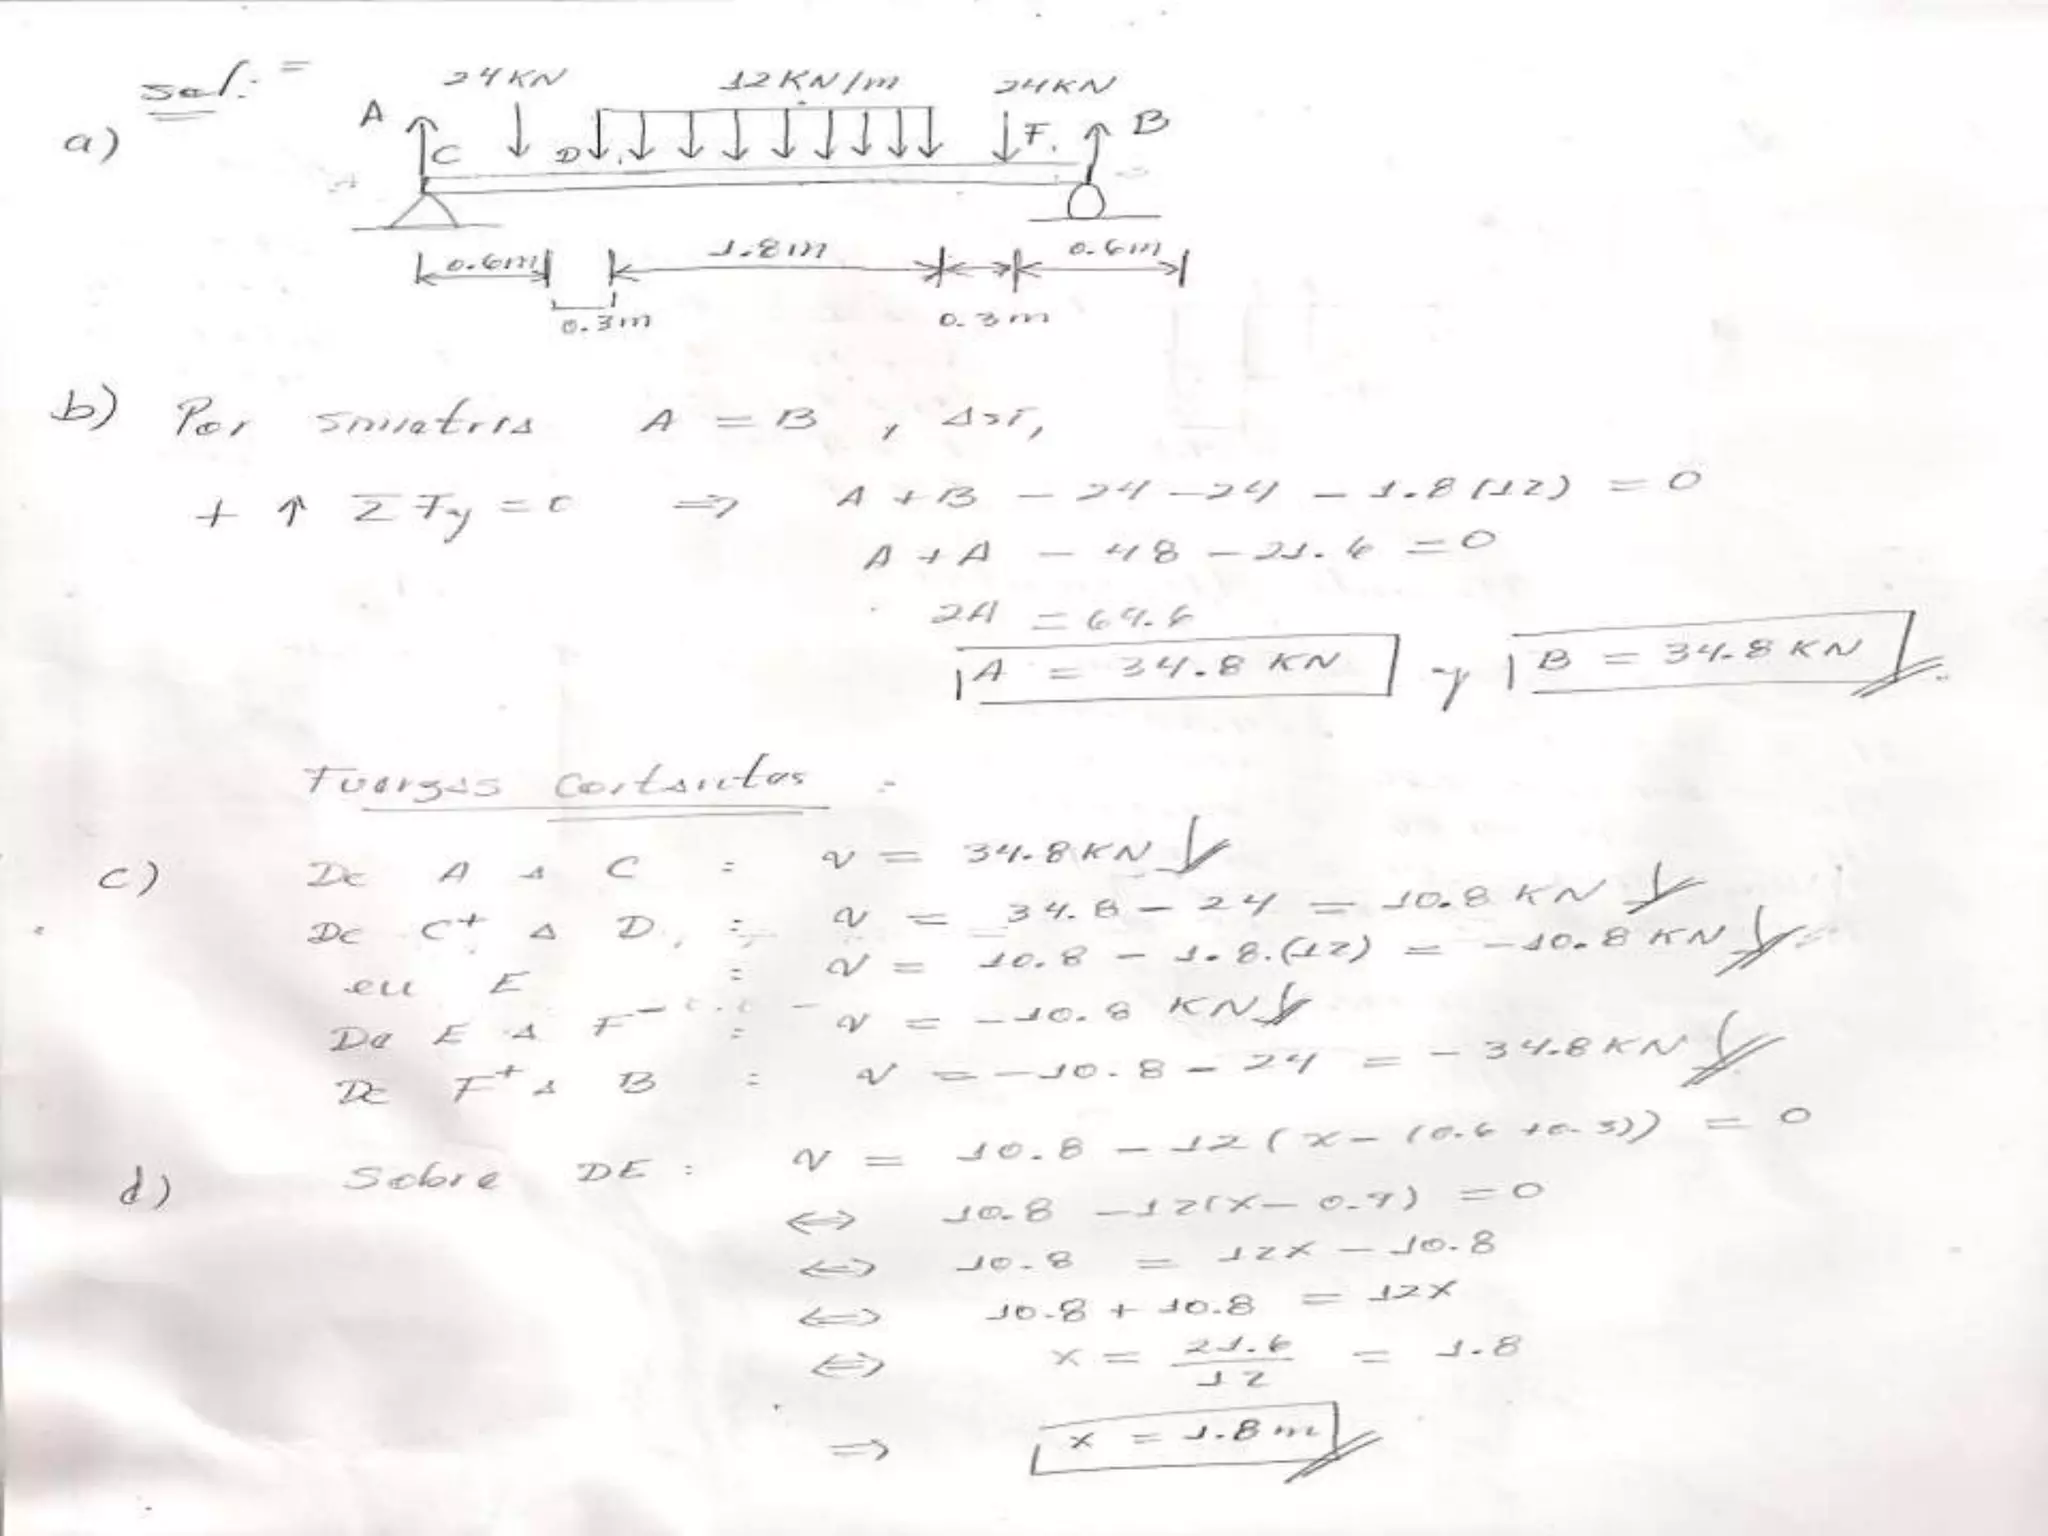 Sol:=
a)
24KN 12KN/m 24KN
A C D F. B
0.6m 1.8m 0.6m
0.3m 0.3m
b) Por simetria A = B , Asi,
+ ↑ ΣFy = 0 => A + B - 24 - 24 - 1.8(12) = 0
A + A - 48 - 21.6 = 0
2A = 69.6
A = 34.8 KN y B = 34.8 KN
Fuerzas Cortantes :
c) De A a C : V = 34.8 KN
De C+ a D, : V = 34.8 - 24 = 10.8 KN
en E : V = 10.8 - 1.8.(12) = -10.8 KN
De E a F- : V = -10.8 KN
De F+ a B : V = -10.8 - 24 = -34.8 KN
d) Sobre DE : V = 10.8 - 12(x - (0.6 + 0.3)) = 0
<=> 10.8 - 12(x - 0.9) = 0
<=> 10.8 = 12x - 10.8
<=> 10.8 + 10.8 = 12x
<=> x = 21.6/12 = 1.8
=> x = 1.8 m